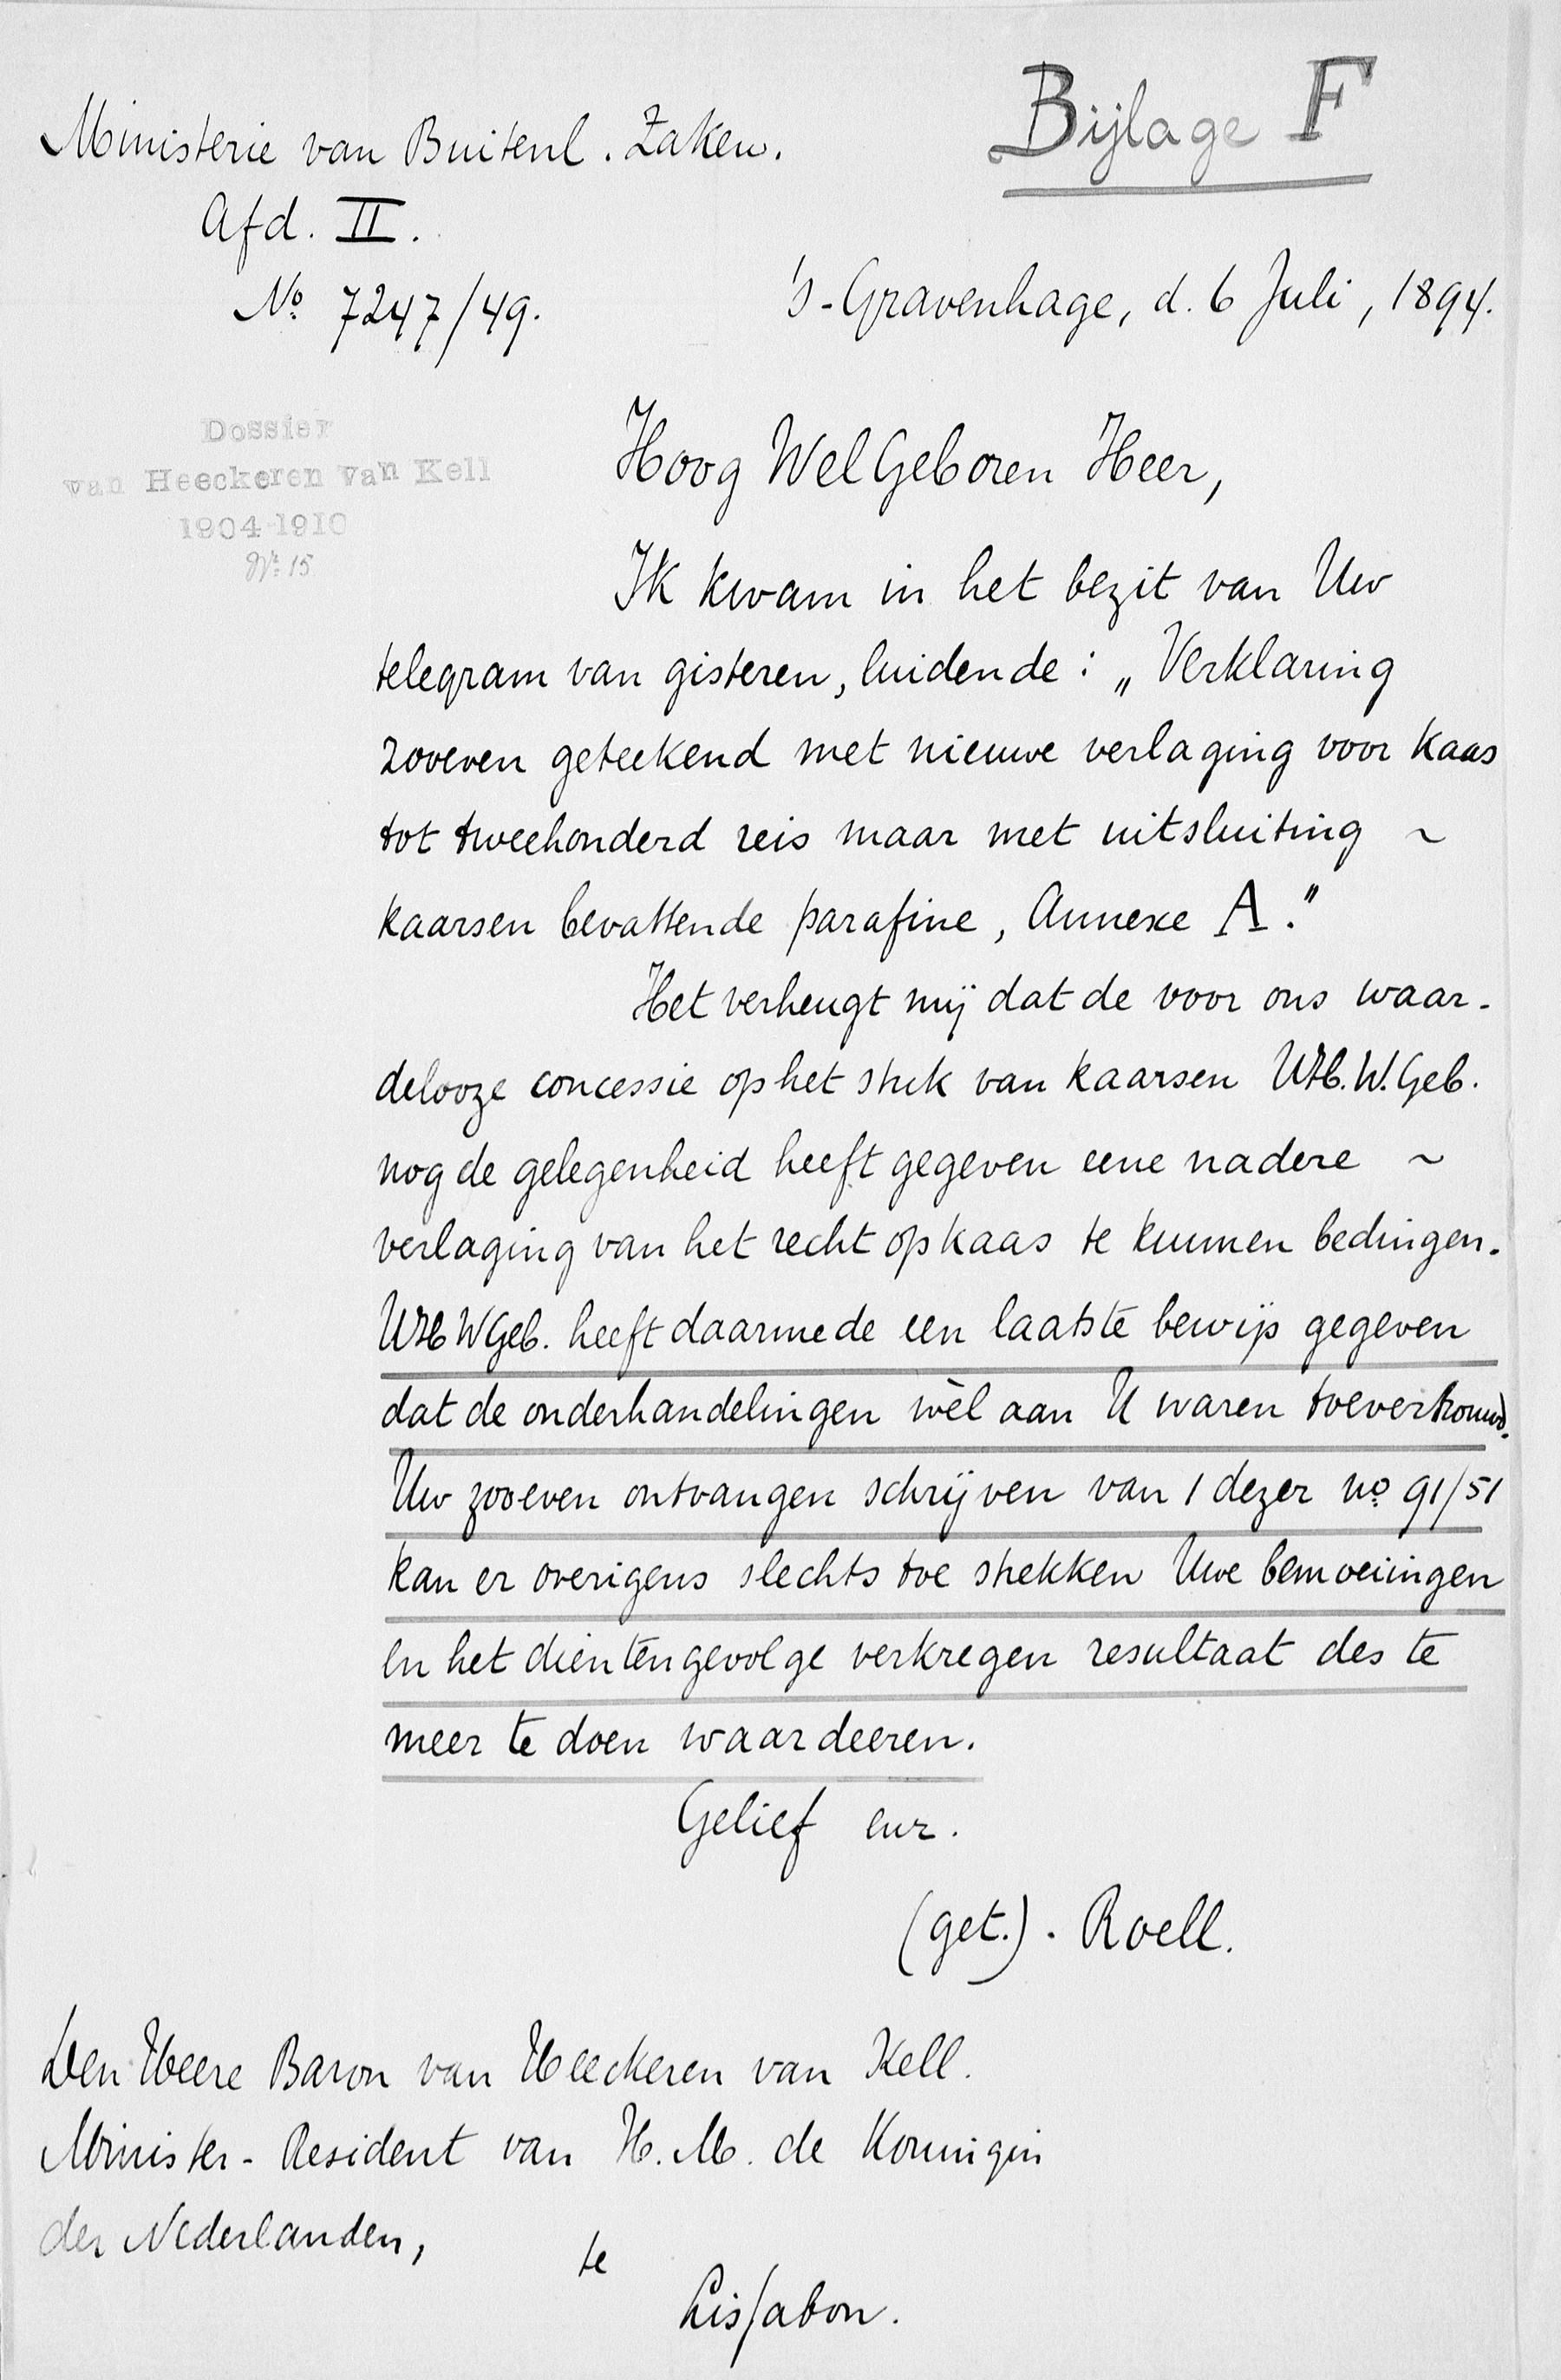 Bijlage F
Ministerie van Buitenl. Zaken.
Afd. II.
No. 7247/49.
's-Gravenhage, d. 6 Juli, 1894.
Dossier
van Heeckeren van Kell
1904-1910
No. 15
Hoog WelGeboren Heer,
Ik kwam in het bezit van Uw
telegram van gisteren, luidende: „Verklaring
zoeven geteekend met nieuwe verlaging voor kaas
tot tweehonderd reis maar met uitsluiting ~
kaarsen bevattende parafine, Annexe A."
Het verheugt mij dat de voor ons waar-
delooze concessie op het stuk van kaarsen UH.W.Geb.
nog de gelegenheid heeft gegeven eene nadere ~
verlaging van het recht op kaas te kunnen bedingen.
UHWGeb. heeft daarmede een laatste bewijs gegeven
dat de onderhandelingen wèl aan U waren toevertrouwd.
Uw zooeven ontvangen schrijven van 1 dezer no. 91/51
kan er overigens slechts toe strekken Uwe bemoeiingen
en het dientengevolge verkregen resultaat des te
meer te doen waardeeren.
Gelief enz.
(get.). Roell.
Den Heere Baron van Heeckeren van Kell.
Minister-Resident van H.M. de Koningin
der Nederlanden,
te
Lissabon.